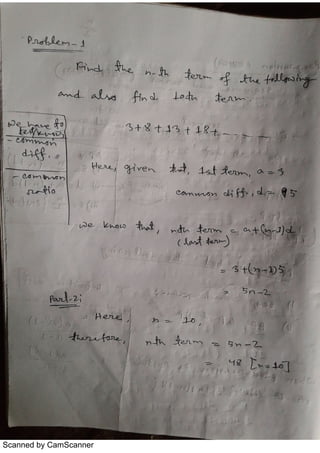 Problem-1
Find the n-th term of the following
and also find 10th term.
3+8+13+18+ - - - -
we have to
- common
diff.
- common
ratio
Here, given that, 1st term, a = 3
common diff, d = 5
we know that, nth term = a+(n-1)d
(last term)
= 3+(n-1)5
= 5n-2
Part-2:
Here, n = 10,
therefore, nth term = 5n-2
= 48 [n=10]
Scanned by CamScanner